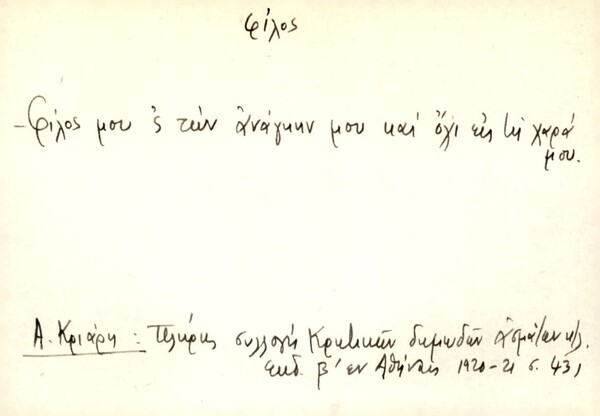 φίλος
– Φίλος μου ς την ἀνάγκην μου και ὄχι εἰς τη χαρά
μου.
Α. Κριάρη : Πλήρης συλλογή Κρητικῶν δημωδῶν ἀσμάτων κ/λ.
εκδ. β' εν Αθήναις 1920-21 σ. 431